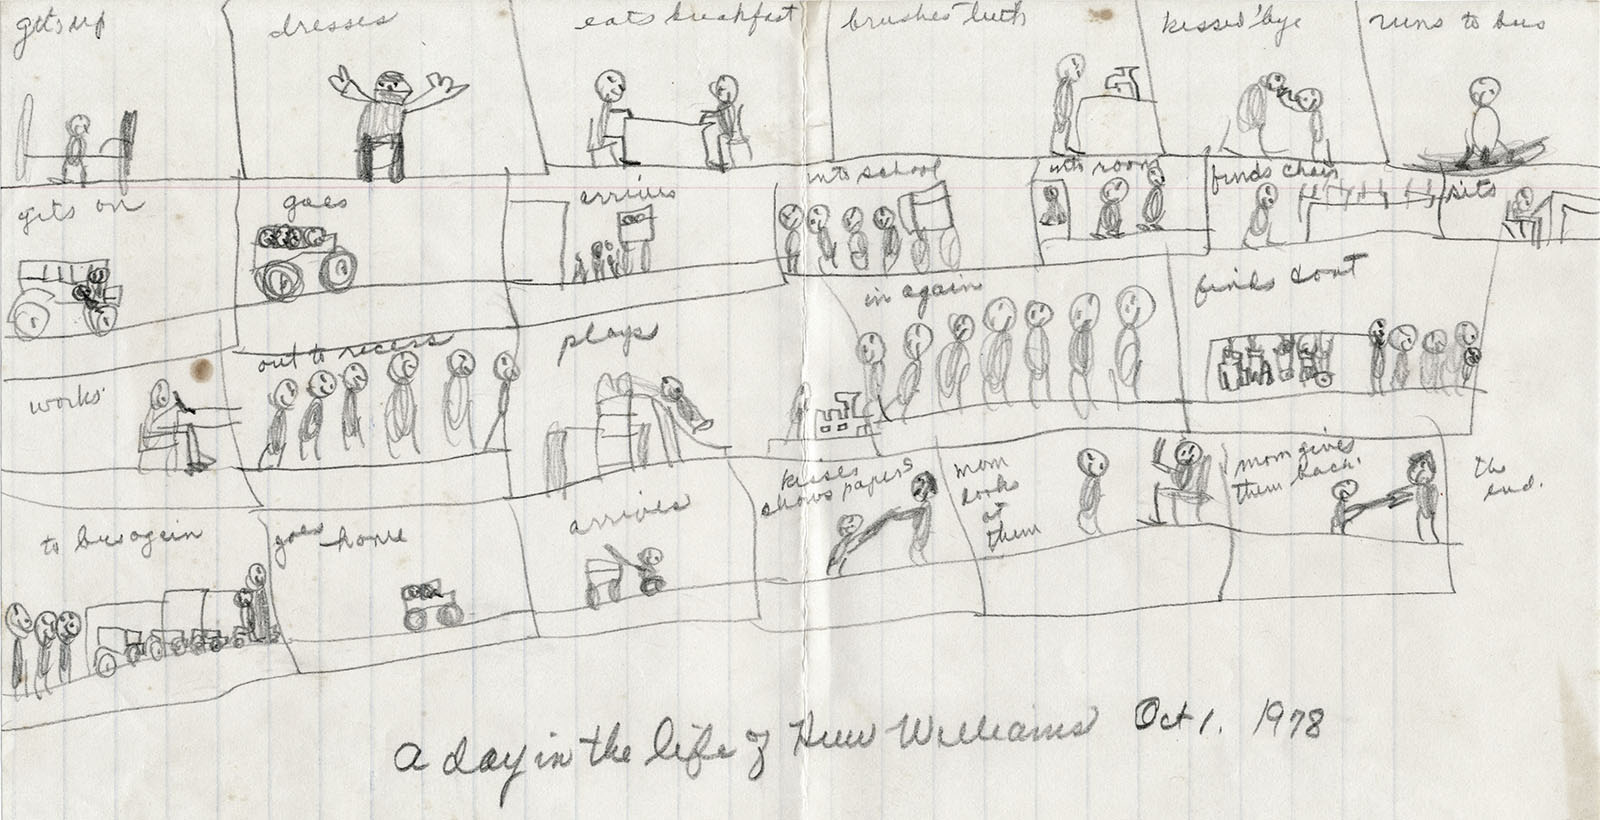 gets up
dresses
eats breakfast
brushes teeth
kisses 'bye
runs to bus
gets on
goes
arrives
into school
into room
finds chair
sits
works
out to recess
plays
in again
finds
to bus again
goes home
arrives
kisses
shows papers
mom
looks
at
them
mom gives
them back.
the
end.
a day in the life of Huw Williams Oct 1. 1978